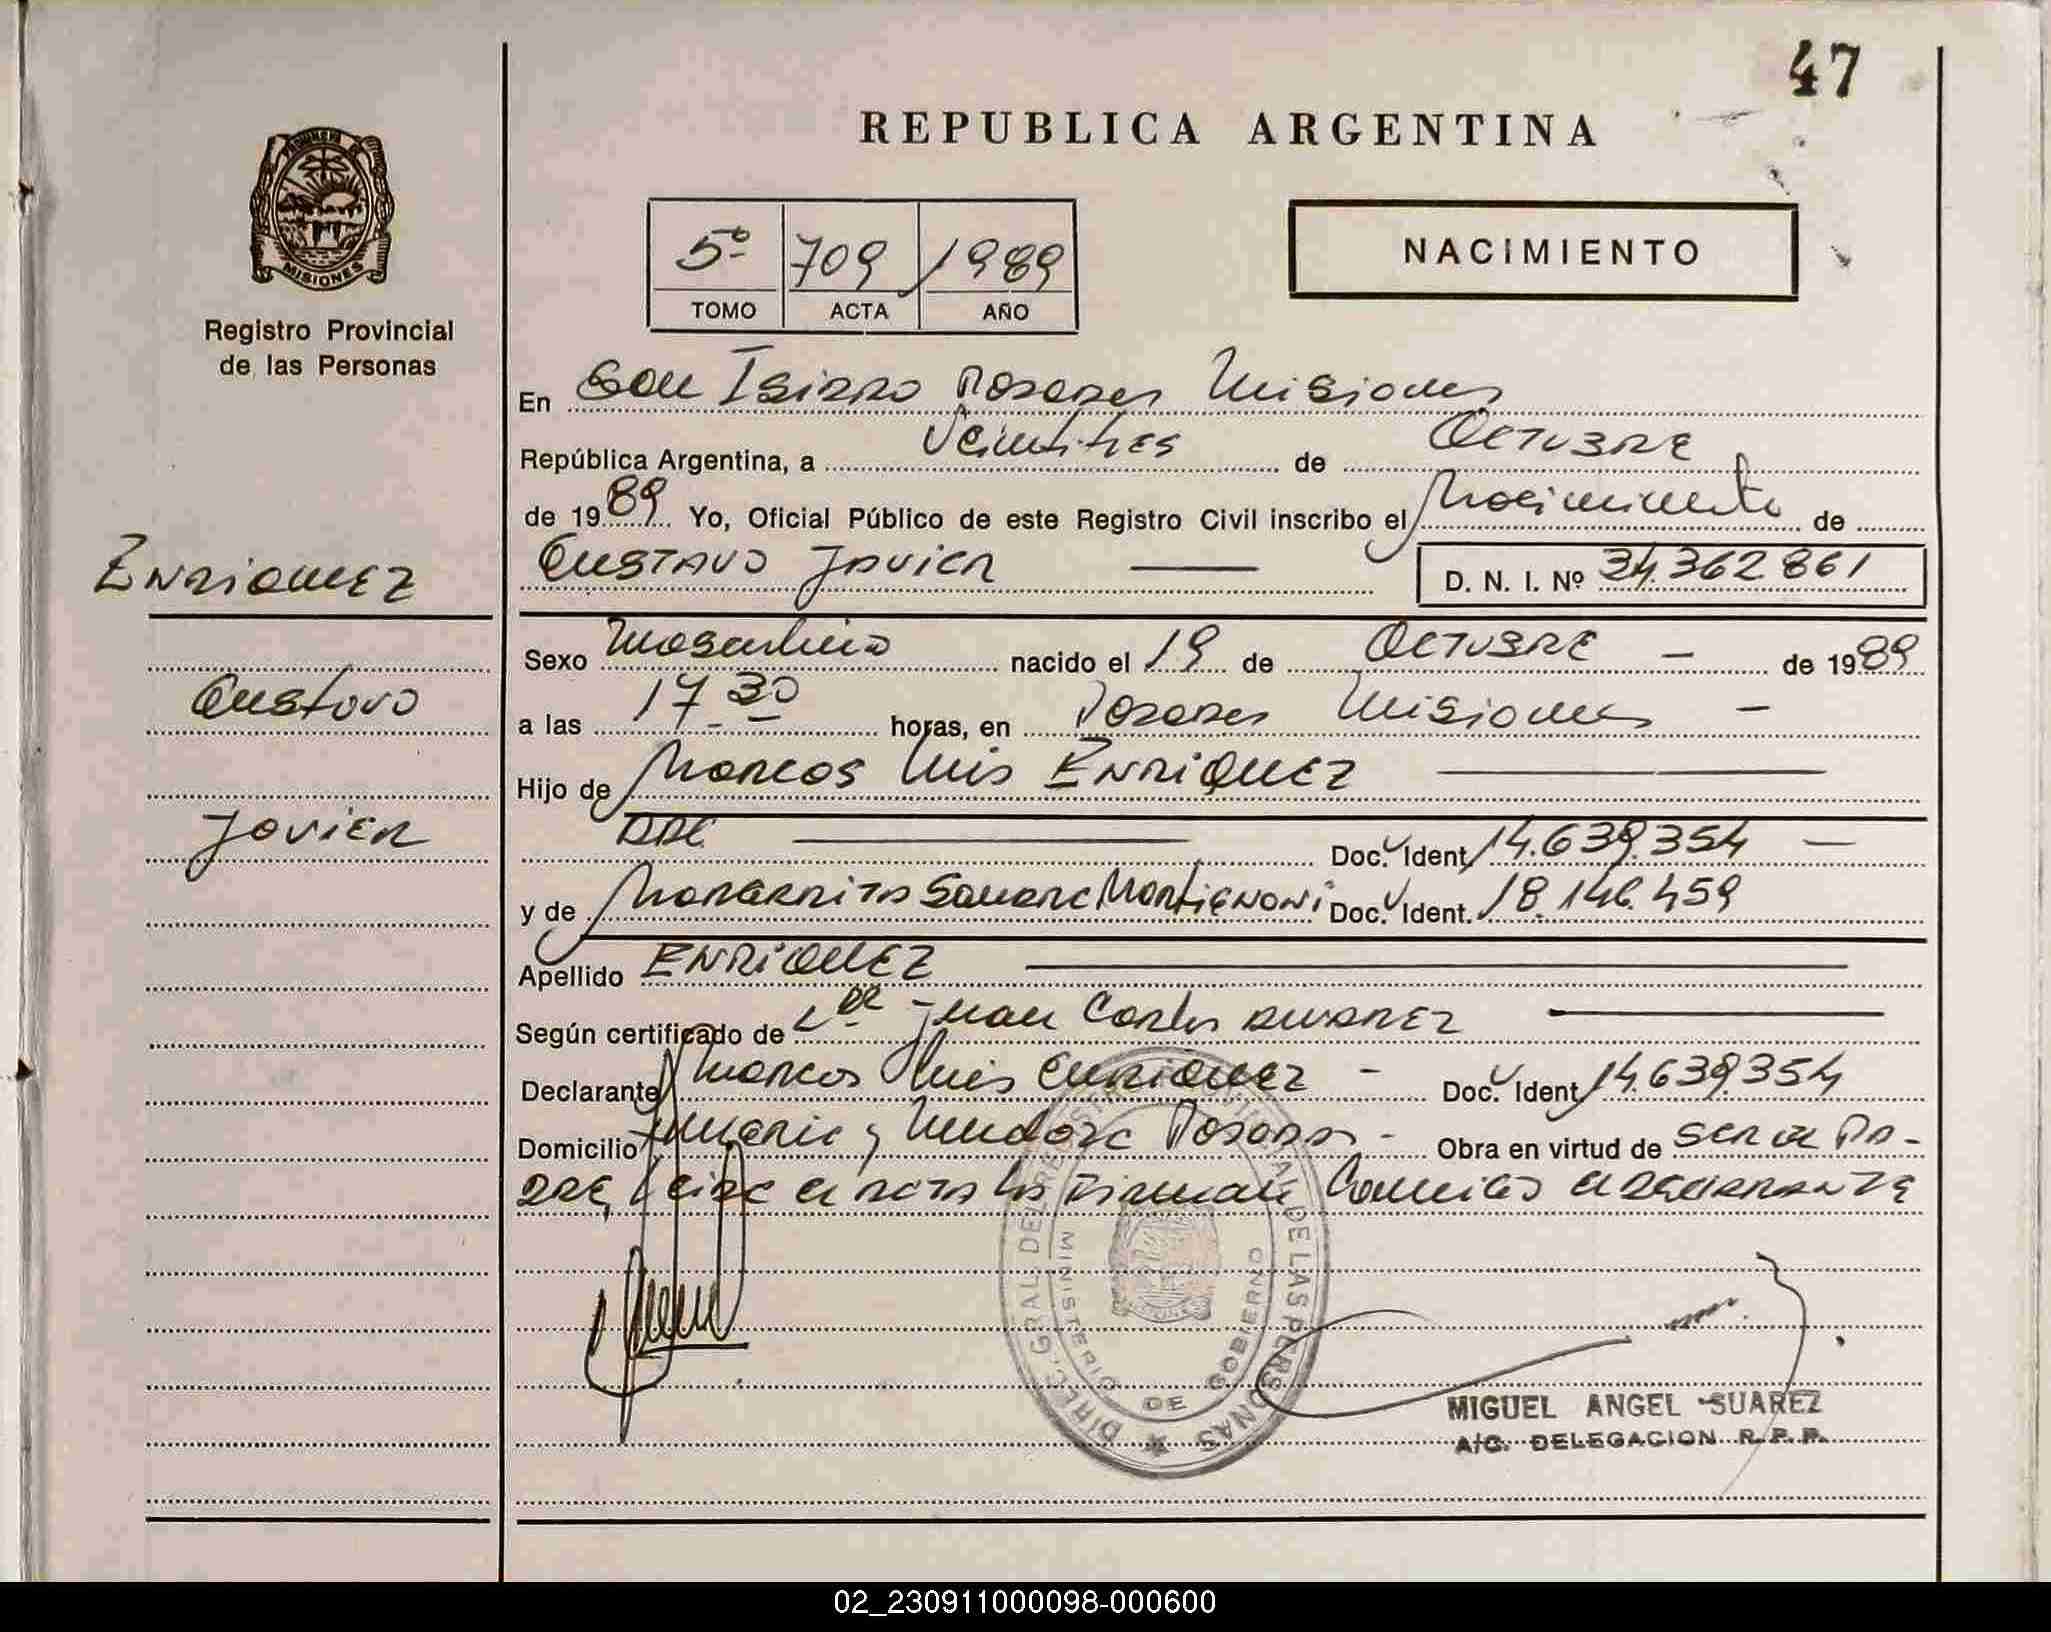 47
REPUBLICA ARGENTINA
PROVINCIA DE
MISIONES
5º 709 1989
TOMO ACTA AÑO
NACIMIENTO
Registro Provincial
de las Personas
En San Isidro Posadas Misiones
República Argentina, a Veintitres de Octubre
de 1989 Yo, Oficial Público de este Registro Civil inscribo el Nacimiento de
Gustavo Javier D. N. I. Nº 34.362.861
Enriquez
Sexo Masculino nacido el 19 de Octubre - de 1989
Gustavo
a las 17 30 horas, en Posadas Misiones -
Hijo de Marcos Luis Enriquez
Javier
Doc. Ident 14.639.354 -
y de Margarita Martignoni Doc. Ident. 18.146.459
Apellido Enriquez
Según certificado de Dr Juan Carlos Alvarez
Declarante Marcos Luis Enriquez - Doc. Ident 14.639.354
Domicilio y Posadas - Obra en virtud de ser el Pa-
dre, Leida el acta la Firman Conmigo el declarante
DIREC. GRAL. DEL REGISTRO PROVINCIAL DE LAS PERSONAS
MINISTERIO DE GOBIERNO
MIGUEL ANGEL SUAREZ
A/C. DELEGACION R. P. P.
02_230911000098-000600